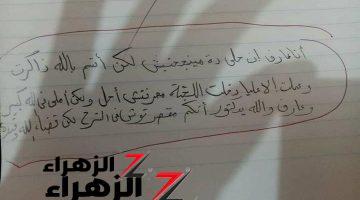 أنا عارف إن حلى ده مينجحنيش لكن أقسم بالله ذاكرت
وعملت الا عليا دخلت اللجنة معرفتش أحل ولكن أملى فى الله كبير
وعارف والله يدكتور أنكم مقصرتوش فى الشرح لكن قضاء الله
الزهراء
الزهراء